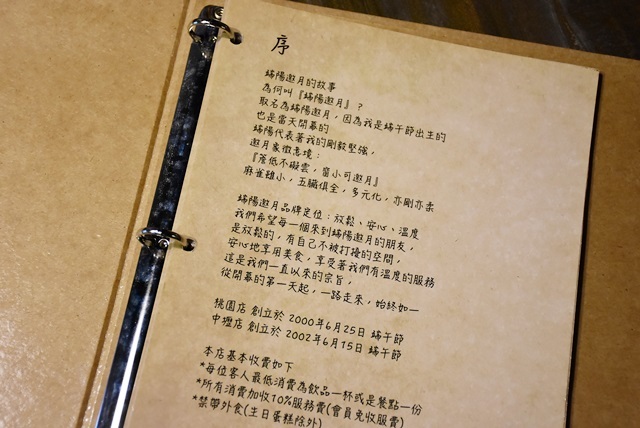 序
端陽邀月的故事
為何叫『端陽邀月』？
取名為端陽邀月，因為我是端午節出生的
也是當天開幕的
端陽代表著我的剛毅堅強，
邀月象徵意境：
『簷低不礙雲，窗小可邀月』
麻雀雖小，五臟俱全，多元化，亦剛亦柔
端陽邀月品牌定位：放鬆、安心、溫度
我們希望每一個來到端陽邀月的朋友，
是放鬆的，有自己不被打擾的空間，
安心地享用美食，享受著我們有溫度的服務
這是我們一直以來的宗旨，
從開幕的第一天起，一路走來，始終如一
桃園店 創立於 2000年6月25日 端午節
中壢店 創立於 2002年6月15日 端午節
本店基本收費如下
*每位客人最低消費為飲品一杯或是餐點一份
*所有消費加收10%服務費(會員免收服費)
*禁帶外食(生日蛋糕除外)